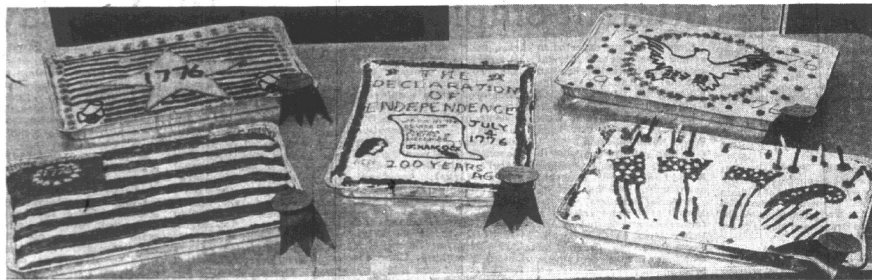 1776
THE
DECLARATION
OF
INDEPENDENCE
JULY
4
1776
HANCOCK
200 YEARS
AGO
76
1776